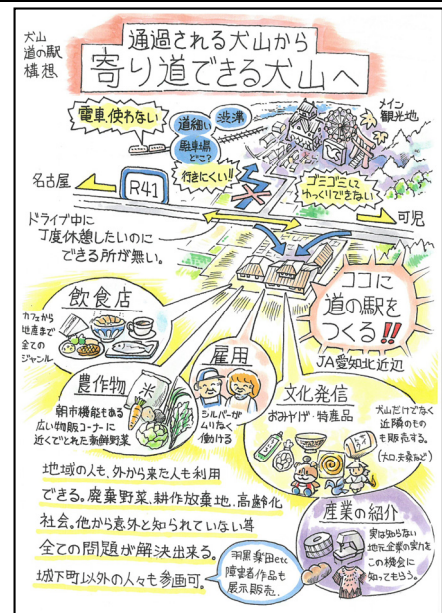 犬山
道の駅
構想
通過される犬山から
寄り道できる犬山へ
電車、使わない
道細い
渋滞
駐車場
どこ?
行きにくい!!
メイン
観光地
ゴミゴミして
ゆっくりできない
名古屋
R41
可児
ドライブ中に
丁度休憩したいのに
できる所が無い。
ココに
道の駅を
つくる!!
JA愛知北近辺
飲食店
カフェから
地産まで
全ての
ジャンル
農作物
米
朝市機能もある
広い物販コーナーに
近くでとれた新鮮野菜
雇用
シルバーが
ムリなく
働ける
文化発信
おみやげ・特産品
犬山だけでなく
近隣のもの
も販売する。
(大口、扶桑など)
地域の人も、外から来た人も利用
できる。廃棄野菜、耕作放棄地、高齢化
社会。他から意外と知られていない等
全ての問題が解決出来る。
城下町以外の人々も参画可。
羽黒楽田etc
障害者作品も
展示販売.
産業の紹介
実は知らない
地元企業の実力を
この機会に
知ってもらう。